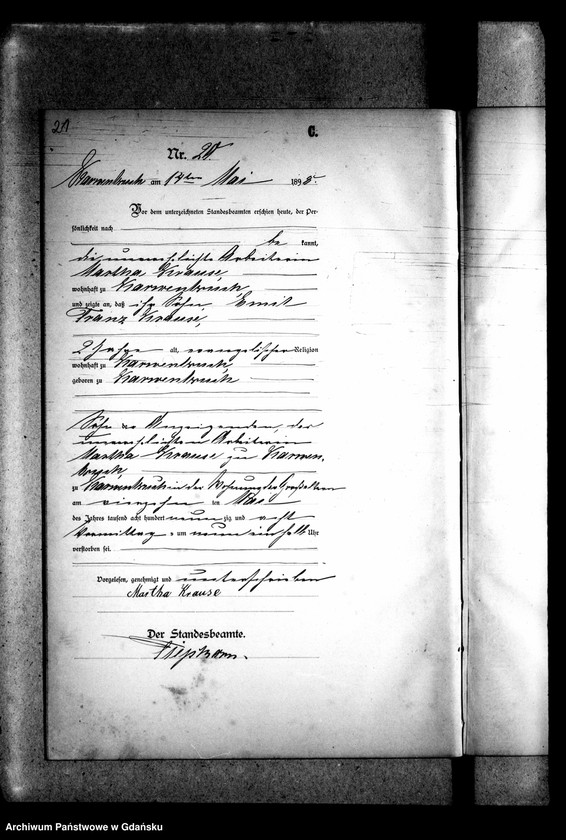 21
C.
Nr. 20.
Karwenbruch am 14ten Mai 1898.
Vor dem unterzeichneten Standesbeamten erschien heute, der Per-
sönlichkeit nach
be kannt,
die unverehelichte Arbeiterin
Martha Krause
wohnhaft zu Karwenbruch,
und zeigte an, daß ihr Sohn Emil
Franz Krause,
2 Jahre alt, evangelischer Religion
wohnhaft zu Karwenbruch,
geboren zu Karwenbruch
Sohn der Anzeigenden, der
unverehelichten Arbeiterin
Martha Krause zu Karwen-
bruch,
zu Karwenbruch in der Wohnung der Großeltern
am vierzehn ten Mai
des Jahres tausend acht hundert neun zig und acht
Vormittag s um neun einhalb Uhr
verstorben sei.
Vorgelesen, genehmigt und unterschrieben
Martha Krause
Der Standesbeamte.
Archiwum Państwowe w Gdańsku